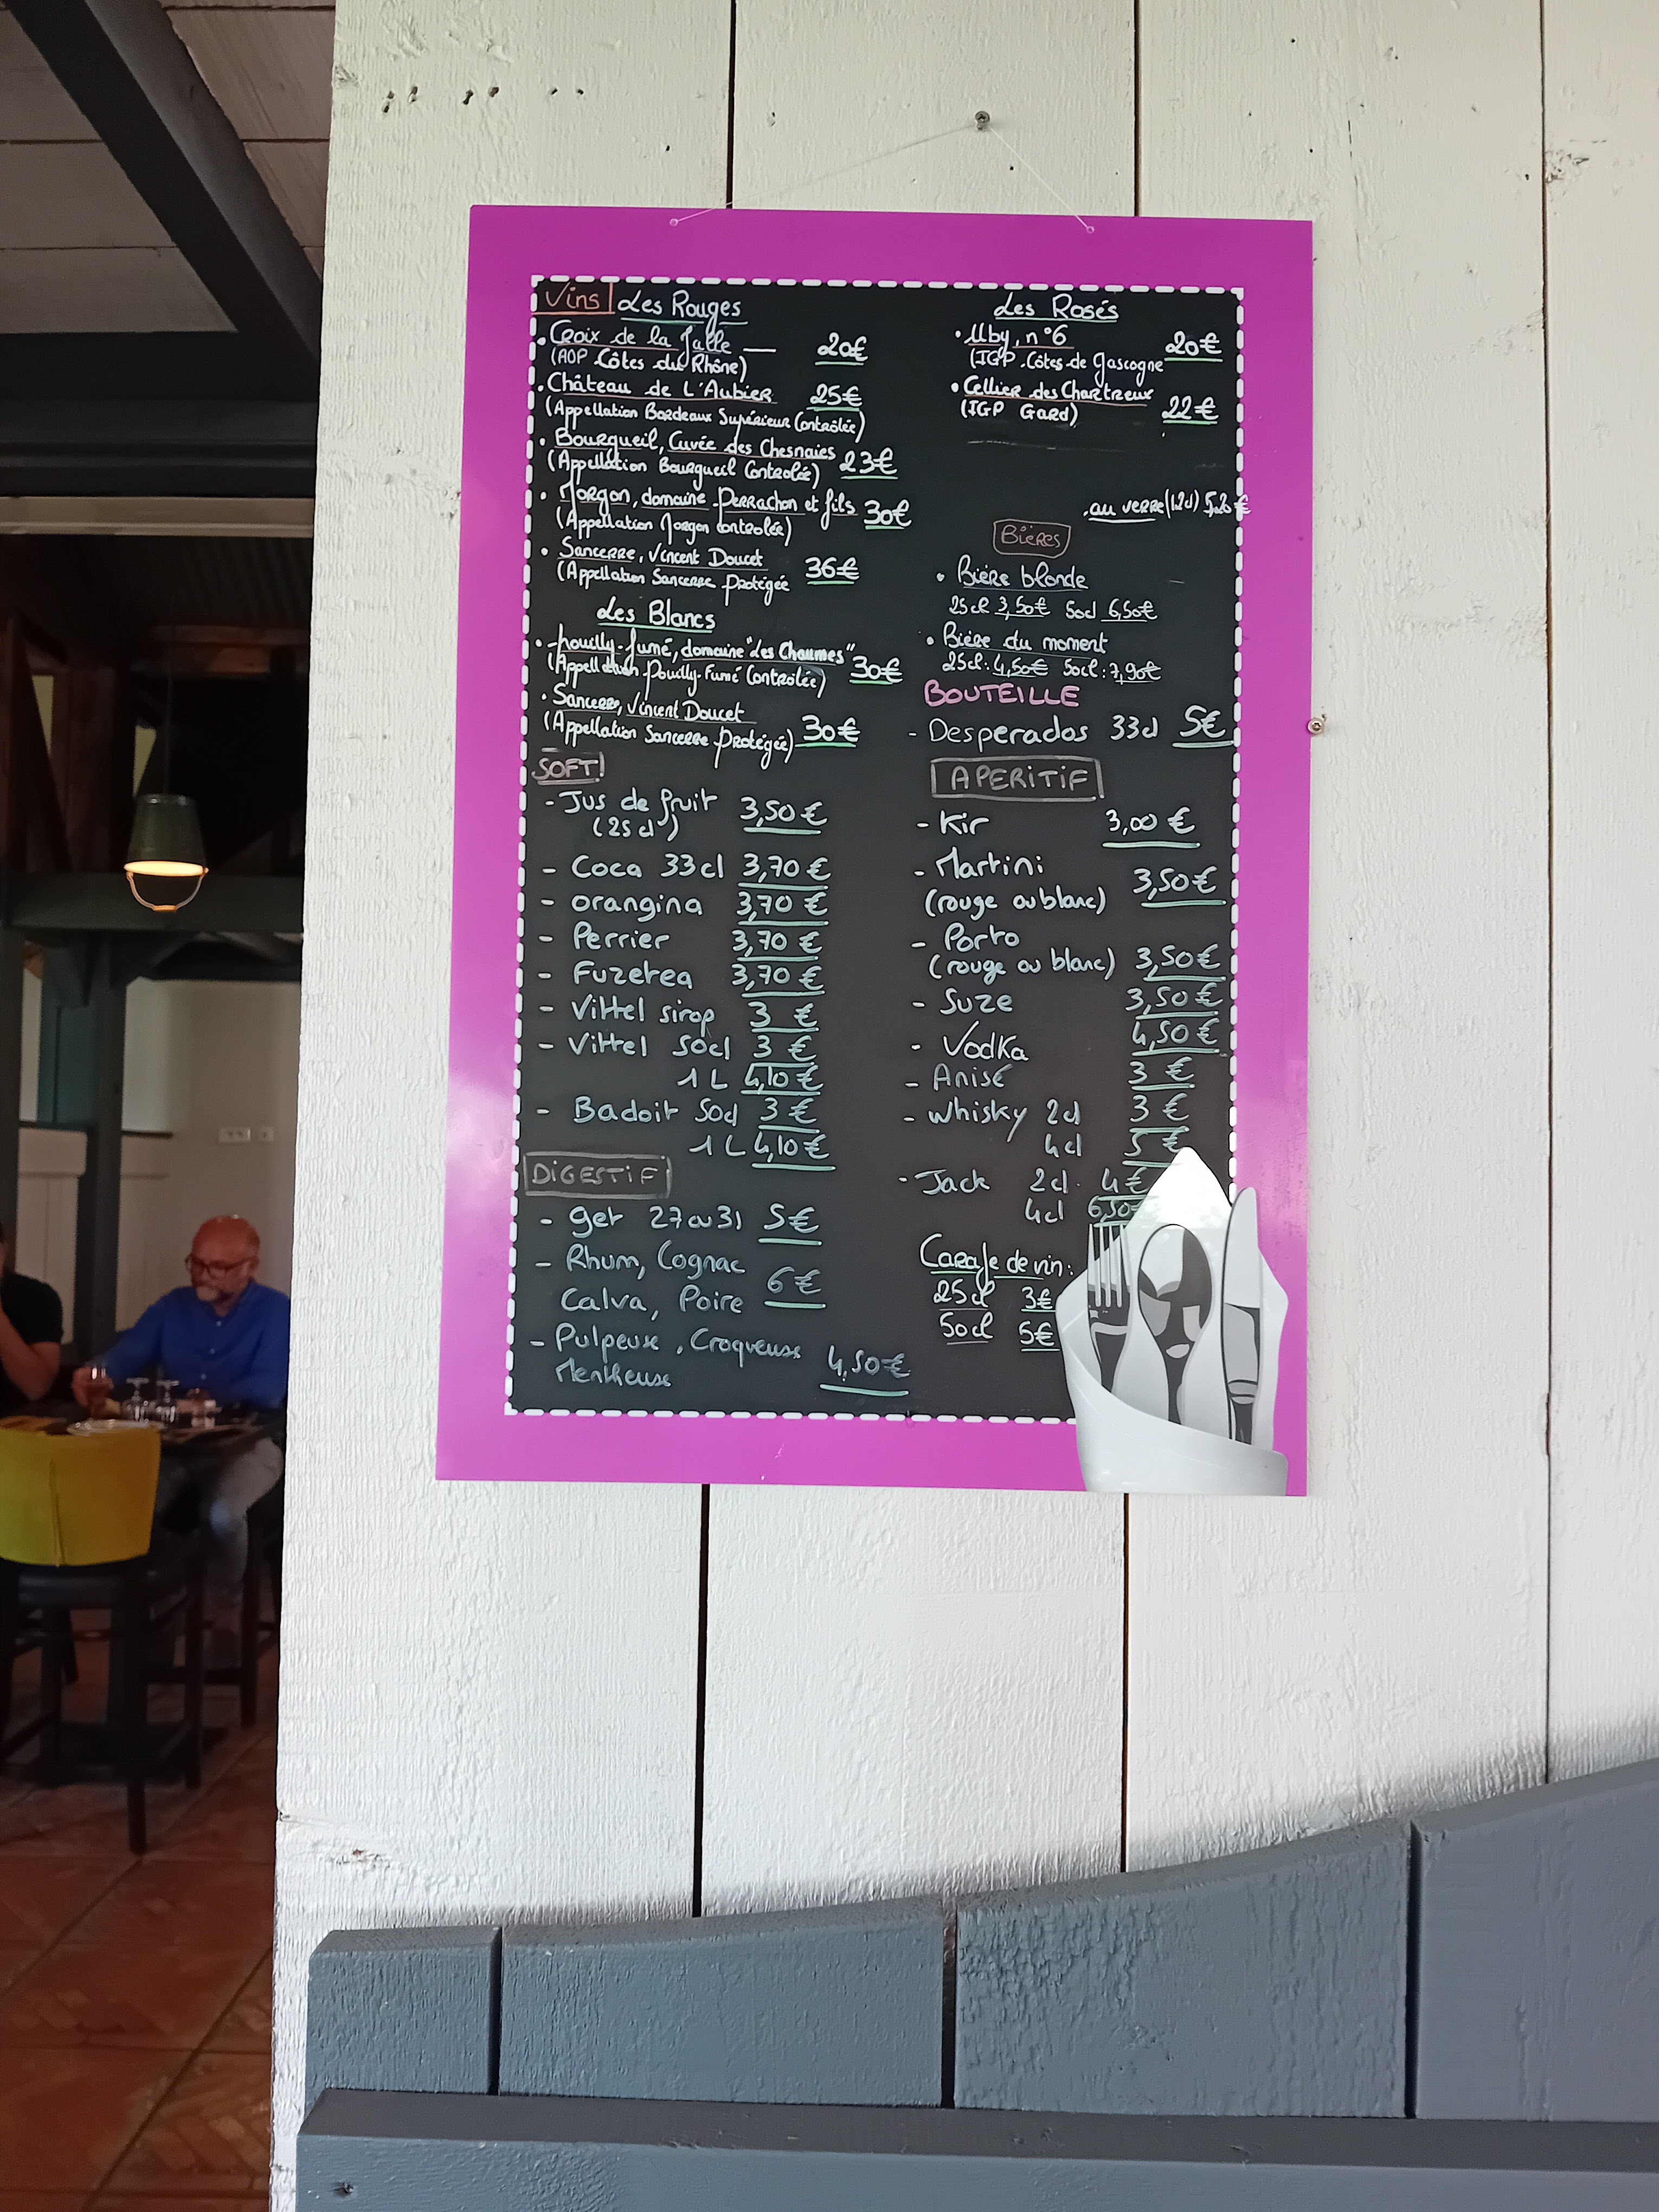 Vins
Les Rouges
• Croix de la Jalle — 20€
(AOP Côtes du Rhône)
• Château de L'Aubier 25€
(Appellation Bordeaux Supérieur Contrôlée)
• Bourgueil, Cuvée des Chesnaies
(Appellation Bourgueil Contrôlée) 23€
• Morgon, domaine Perrachon et fils 30€
(Appellation Morgon Contrôlée)
• Sancerre, Vincent Doucet 36€
(Appellation Sancerre Protégée
Les Blancs
• Pouilly-fumé, domaine "Les Chaumes"
(Appellation Pouilly-Fumé Contrôlée) 30€
• Sancerre, Vincent Doucet
(Appellation Sancerre Protégée) 30€
SOFT!
- Jus de fruit 3,50€
(25cl)
- Coca 33cl 3,70€
- orangina 3,70€
- Perrier 3,70€
- Fuzetea 3,70€
- Vittel sirop 3€
- Vittel 50cl 3€
1L 4,10€
- Badoit 50cl 3€
1L 4,10€
DIGESTIF
- get 27 ou 31 5€
- Rhum, Cognac
Calva, Poire 6€
- Pulpeuse, Croqueuse
Mentheuse 4,50€
Les Rosés
• Uby, n°6 20€
(IGP Côtes de Gascogne
• Cellier des Chartreux
(IGP Gard) 22€
au verre (12cl) 5,20€
Bières
• Bière blonde
25cl 3,50€ 50cl 6,50€
• Bière du moment
25cl: 4,50€ 50cl: 7,90€
BOUTEILLE
- Desperados 33cl 5€
APERITIF
- Kir 3,00€
- Martini
(rouge ou blanc) 3,50€
- Porto
(rouge ou blanc) 3,50€
- Suze 3,50€
- Vodka 4,50€
- Anisé 3€
- whisky 2cl 3€
4cl 5€
- Jack 2cl. 4€
4cl 6,50€
Carafe de vin:
25cl 3€
50cl 5€